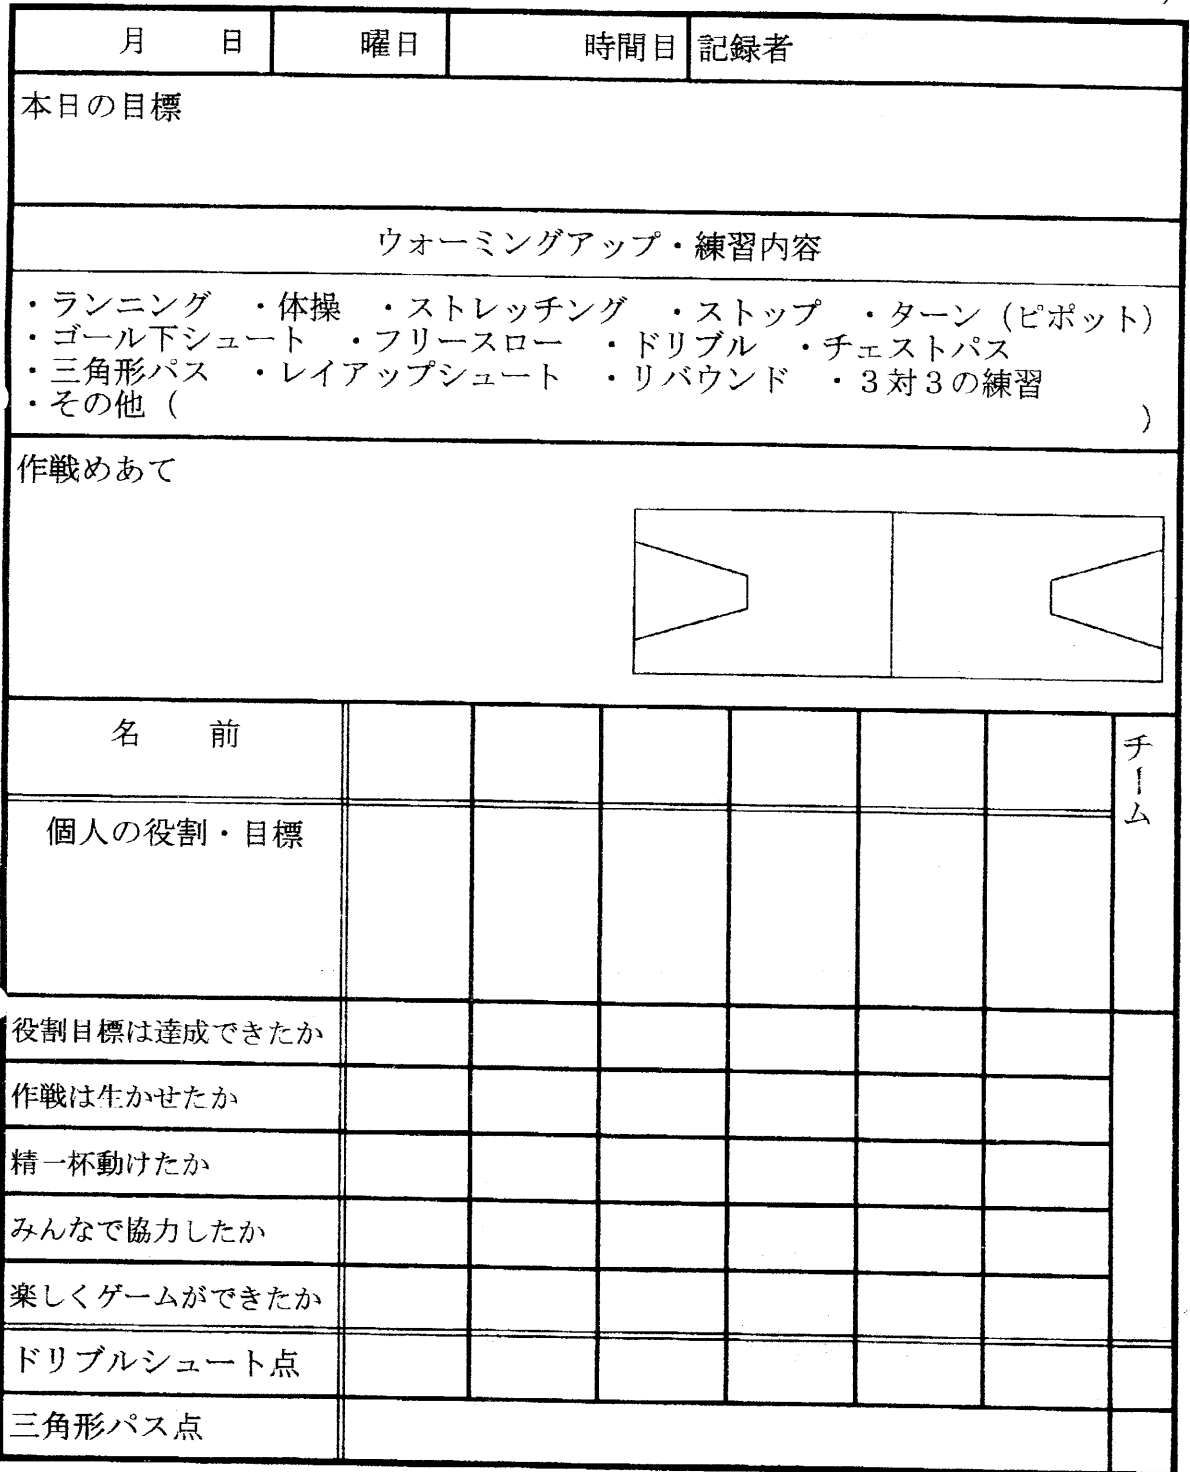 月　日　曜日　時間目　記録者
本日の目標
ウォーミングアップ・練習内容
・ランニング　・体操　・ストレッチング　・ストップ　・ターン（ピポット）
・ゴール下シュート　・フリースロー　・ドリブル　・チェストパス
・三角形パス　・レイアップシュート　・リバウンド　・３対３の練習
・その他（　　）
作戦めあて
名　前
チーム
個人の役割・目標
役割目標は達成できたか
作戦は生かせたか
精一杯動けたか
みんなで協力したか
楽しくゲームができたか
ドリブルシュート点
三角形パス点